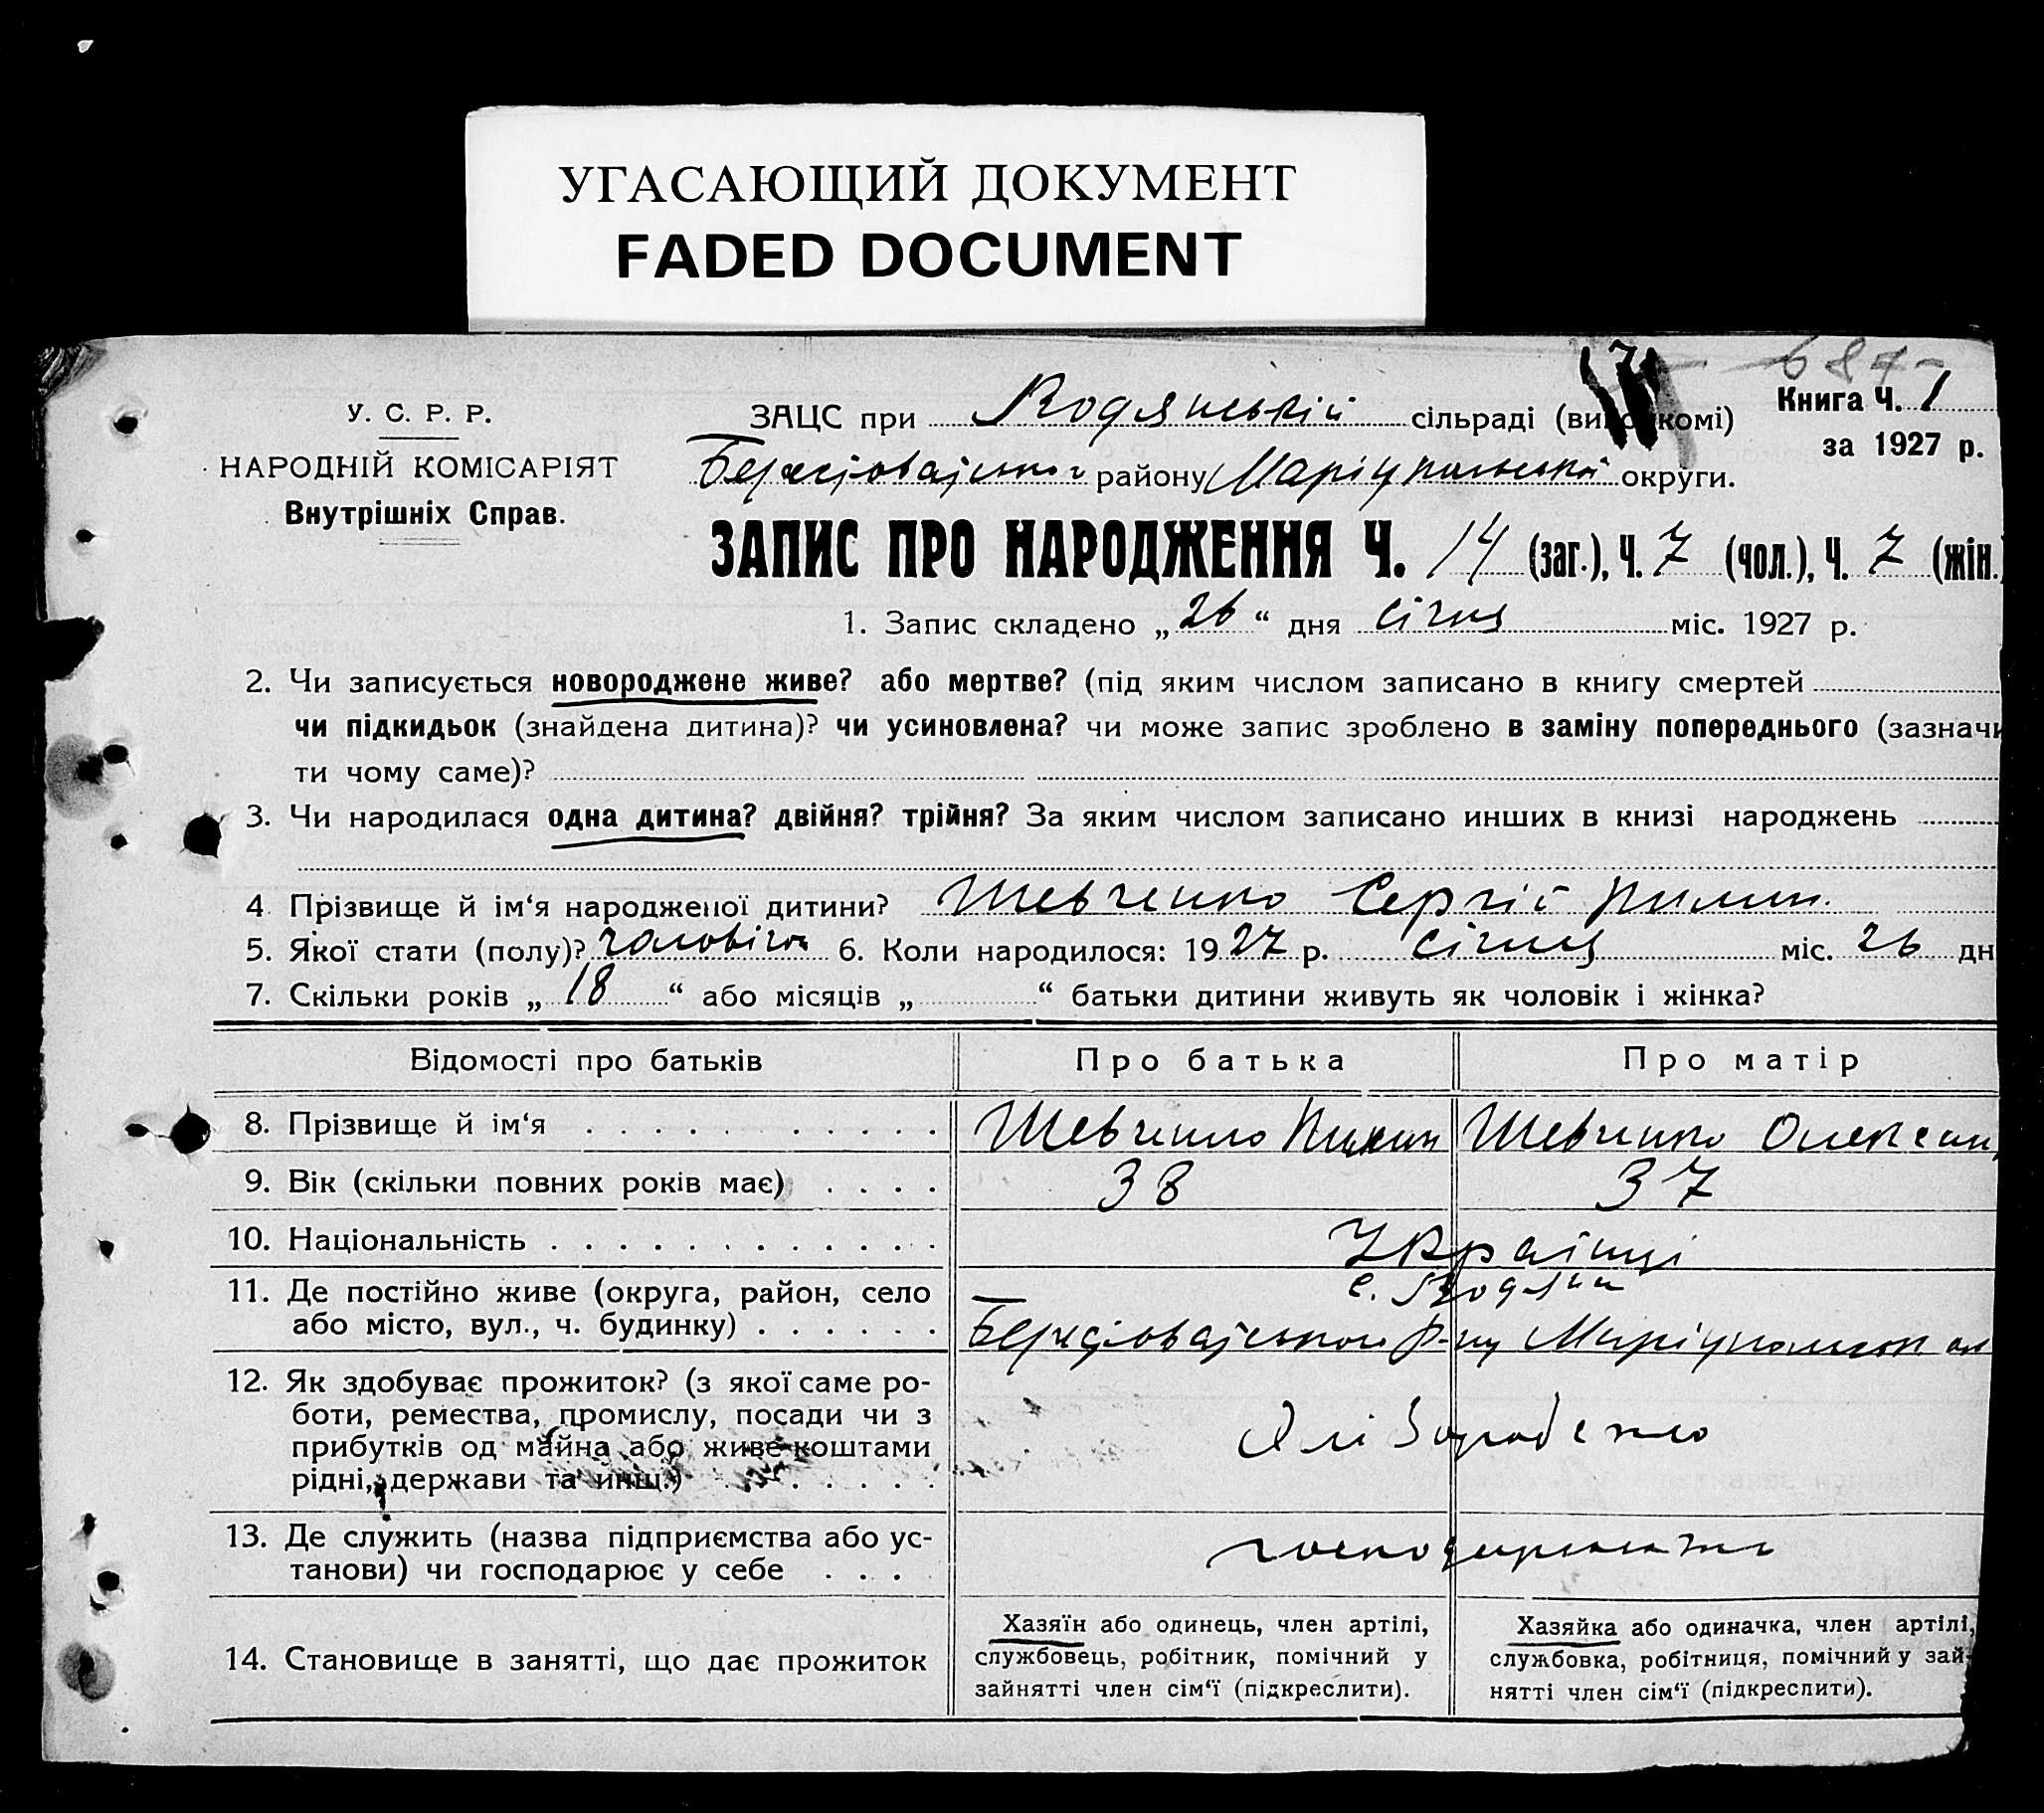 УГАСАЮЩИЙ ДОКУМЕНТ
FADED DOCUMENT
687
У. С. Р. Р.
НАРОДНІЙ КОМІСАРІЯТ
Внутрішніх Справ.
ЗАЦС при Водянській сільраді (виконкомі)
Книга Ч. 1
за 1927 р.
району Маріупольської округи.
ЗАПИС ПРО НАРОДЖЕННЯ Ч. 14 (заг.), Ч. 7 (чол.), Ч. 7 (жін.)
1. Запис складено „26“ дня січня міс. 1927 р.
2. Чи записується новороджене живе? або мертве? (під яким числом записано в книгу смертей
чи підкидьок (знайдена дитина)? чи усиновлена? чи може запис зроблено в заміну попереднього (зазначи
ти чому саме)?
3. Чи народилася одна дитина? двійня? трійня? За яким числом записано инших в книзі народжень
4 Прізвище й ім‘я народженої дитини? Шевченко Сергій Пилип.
5. Якої стати (полу)? чоловічої 6. Коли народилося: 1927 р. січня міс. 26 дн
7. Скільки років „18“ або місяців „ “ батьки дитини живуть як чоловік і жінка?
Відомості про батьків Про батька Про матір
8. Прізвище й ім‘я Шевченко Пилип Шевченко Олексан
9. Вік (скільки повних років має) 38 37
10. Національність Українці
11. Де постійно живе (округа, район, село с. Водяни
або місто, вул., ч. будинку) р-ну
12. Як здобуває прожиток? (з якої саме ро-
боти, ремества, промислу, посади чи з
прибутків од майна або живе коштами
рідні, держави та инш.)
13. Де служить (назва підприємства або ус-
танови) чи господарює у себе
14. Становище в занятті, що дає прожиток
Хазяїн або одинець, член артілі,
службовець, робітник, помічний у
зайнятті член сім‘ї (підкреслити).
Хазяйка або одиначка, член артілі,
службовка, робітниця, помічний у зай-
нятті член сім‘ї (підкреслити).